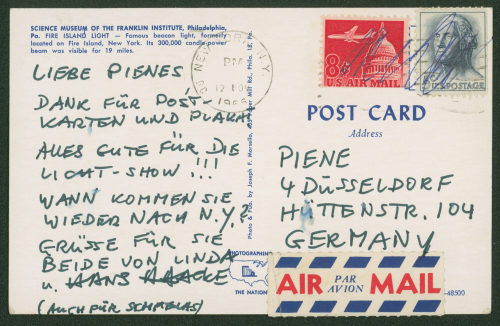 SCIENCE MUSEUM OF THE FRANKLIN INSTITUTE, Philadelphia,
Pa. FIRE ISLAND LIGHT — Famous beacon light, formerly
located on Fire Island, New York. Its 300,000 candle-power
beam was visible for 19 miles.
LIEBE PIENES
DANK FÜR POST-
KARTEN UND PLAKAT
ALLES GUTE FÜR DIE
LICHT-SHOW!!!
WANN KOMMEN SIE
WIEDER NACH N.Y.?
GRÜSSE FÜR SIE
BEIDE VON LINDA
u. HANS HAACKE
(AUCH FÜR SCHMELAS)
Photo & Pub. by Joseph F. Morsello, Phila. 18, Pa.
PHOTOGRAPHING
THE NATION
NEW YORK, N.Y.
PM
12 NOV
8¢
U.S. AIR MAIL
U.S. POSTAGE
POST CARD
Address
PIENE
4 DÜSSELDORF
HÜTTENSTR. 104
GERMANY
AIR PAR AVION MAIL
-48500